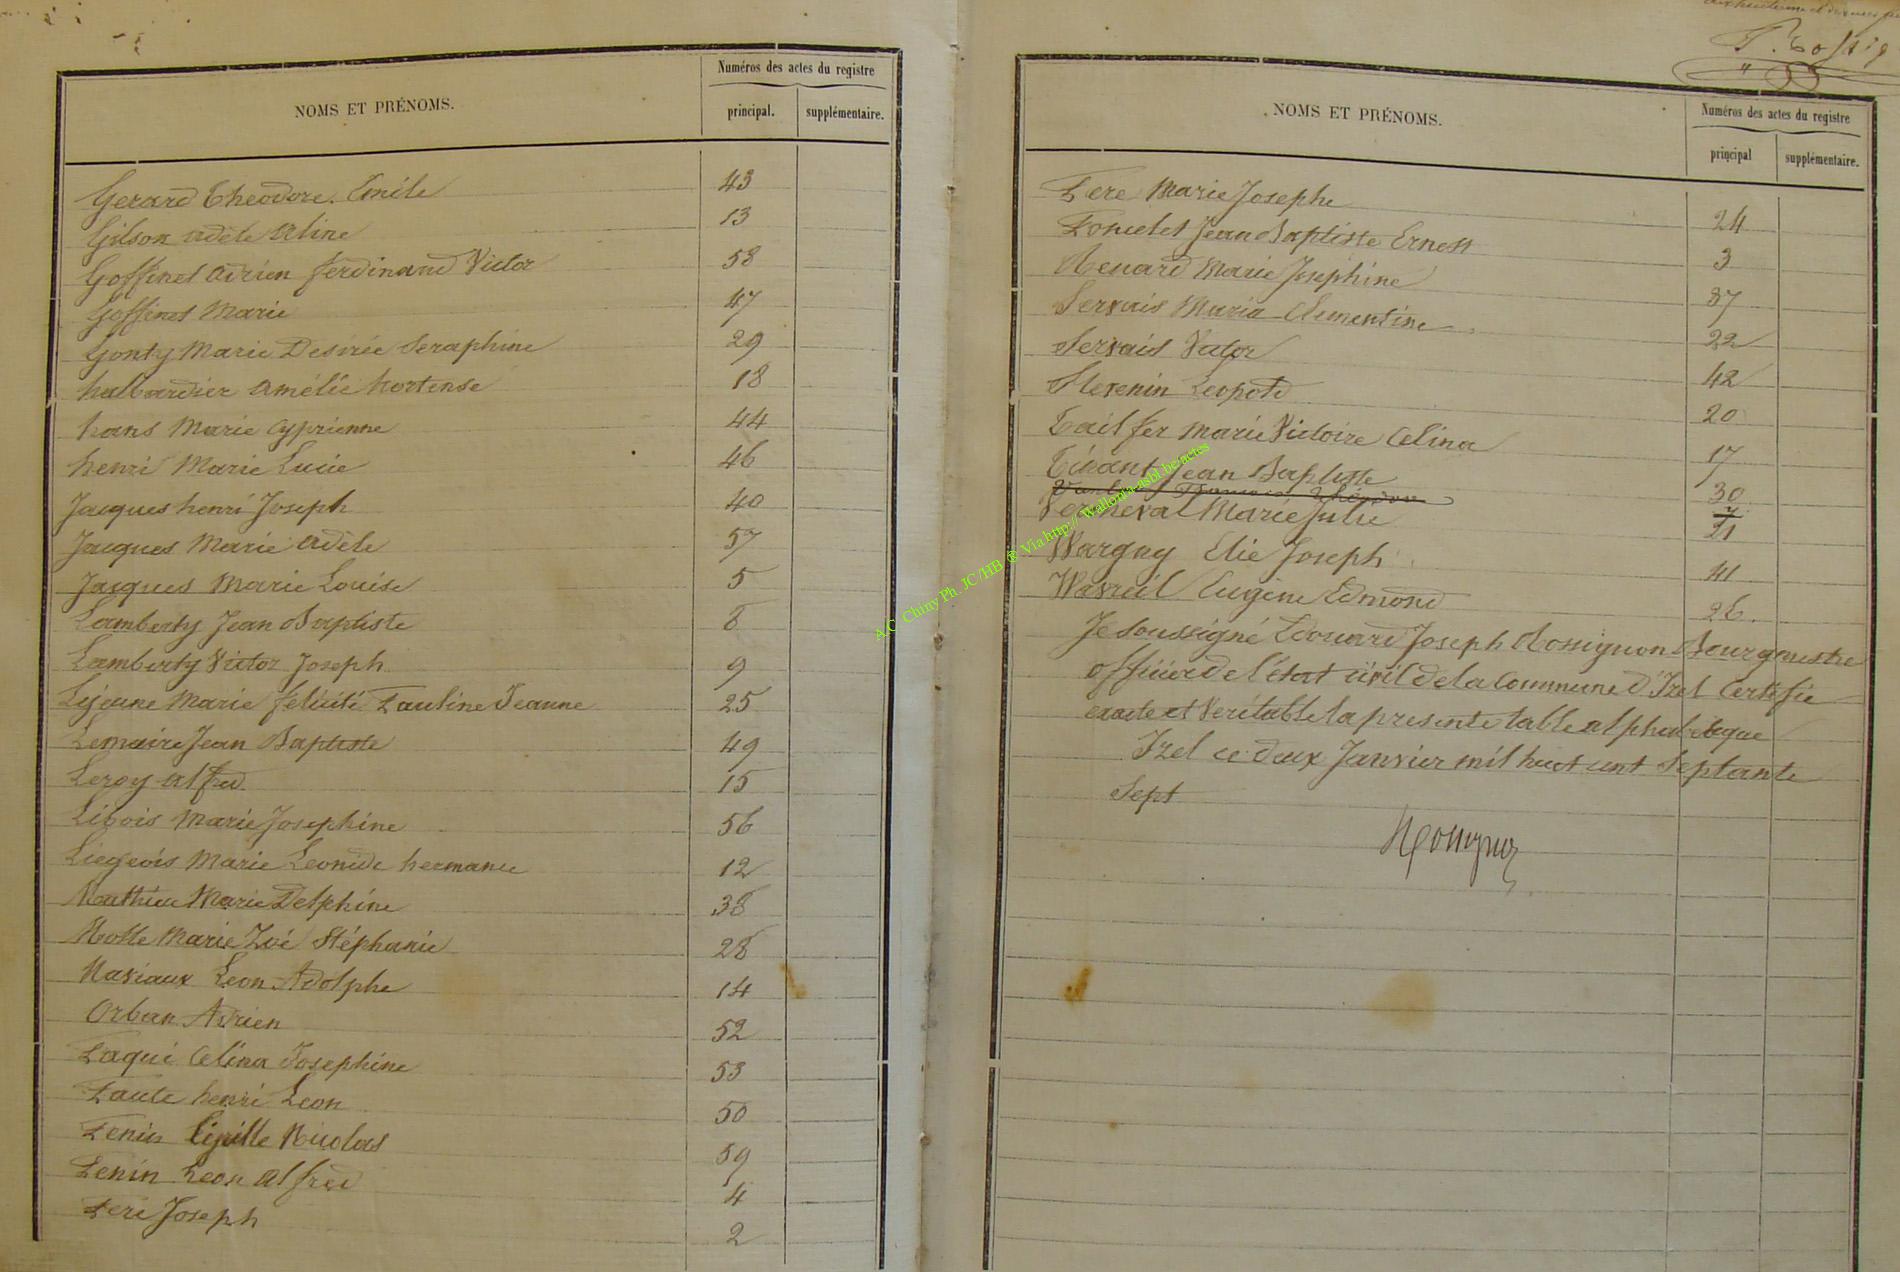 NOMS ET PRÉNOMS.
Numéros des actes du registre
principal.
supplémentaire.
Gerard Theodore Emile 43
Gilson adèle aline 13
Goffinet adrien ferdinand Victor 58
Goffinet Marie 47
Gonty Marie Desirée Seraphine 29
halbardier amélie hortense 18
hans Marie cyprienne 44
henri Marie Lucie 46
Jacques henri Joseph 40
Jacques Marie adèle 57
Jacques Marie Louise 5
Lamberty Jean Baptiste 8
Lamberty Victor Joseph 9
Lejeune Marie félicité Pauline Jeanne 25
Lemaire Jean Baptiste 49
Leroy alfred 15
Libois Marie Josephine 56
Liegeois Marie Leonide hermance 12
Mathieu Marie Delphine 38
Motte Marie Zoé Stéphanie 28
Naviaux Leon Adolphe 14
Orban Adrien 52
Paqui Celina Josephine 53
Paule henri Leon 50
Penin Nicolas 59
Penin Leon alfred 4
Peré Joseph 2
NOMS ET PRÉNOMS.
Numéros des actes du registre
principal
supplémentaire.
Pere Marie Josephe 24
Poncelet Jean Baptiste Ernest 3
Renard Marie Josephine 37
Servais Maria Clementine 22
Servais Victor 42
Stevenin Leopold 20
Tailfer marie Victoire Celina 17
Jean Baptiste 30
Vercheval Marie Julie 21
Wargny Elie Joseph 41
Wavreil Eugène Edmond 26
Je soussigné Edouard Joseph Rossignon Bourgmestre
officier de l'état civil de la Commune d'Izel Certifie
exacte et Veritable la presente table alphabetique
Izel ce deux Janvier mil huit cent Septante
Sept
Rossignon
A.C. Chiny Ph. JC/HB ® Via http://Wallonia-asbl.be/actes